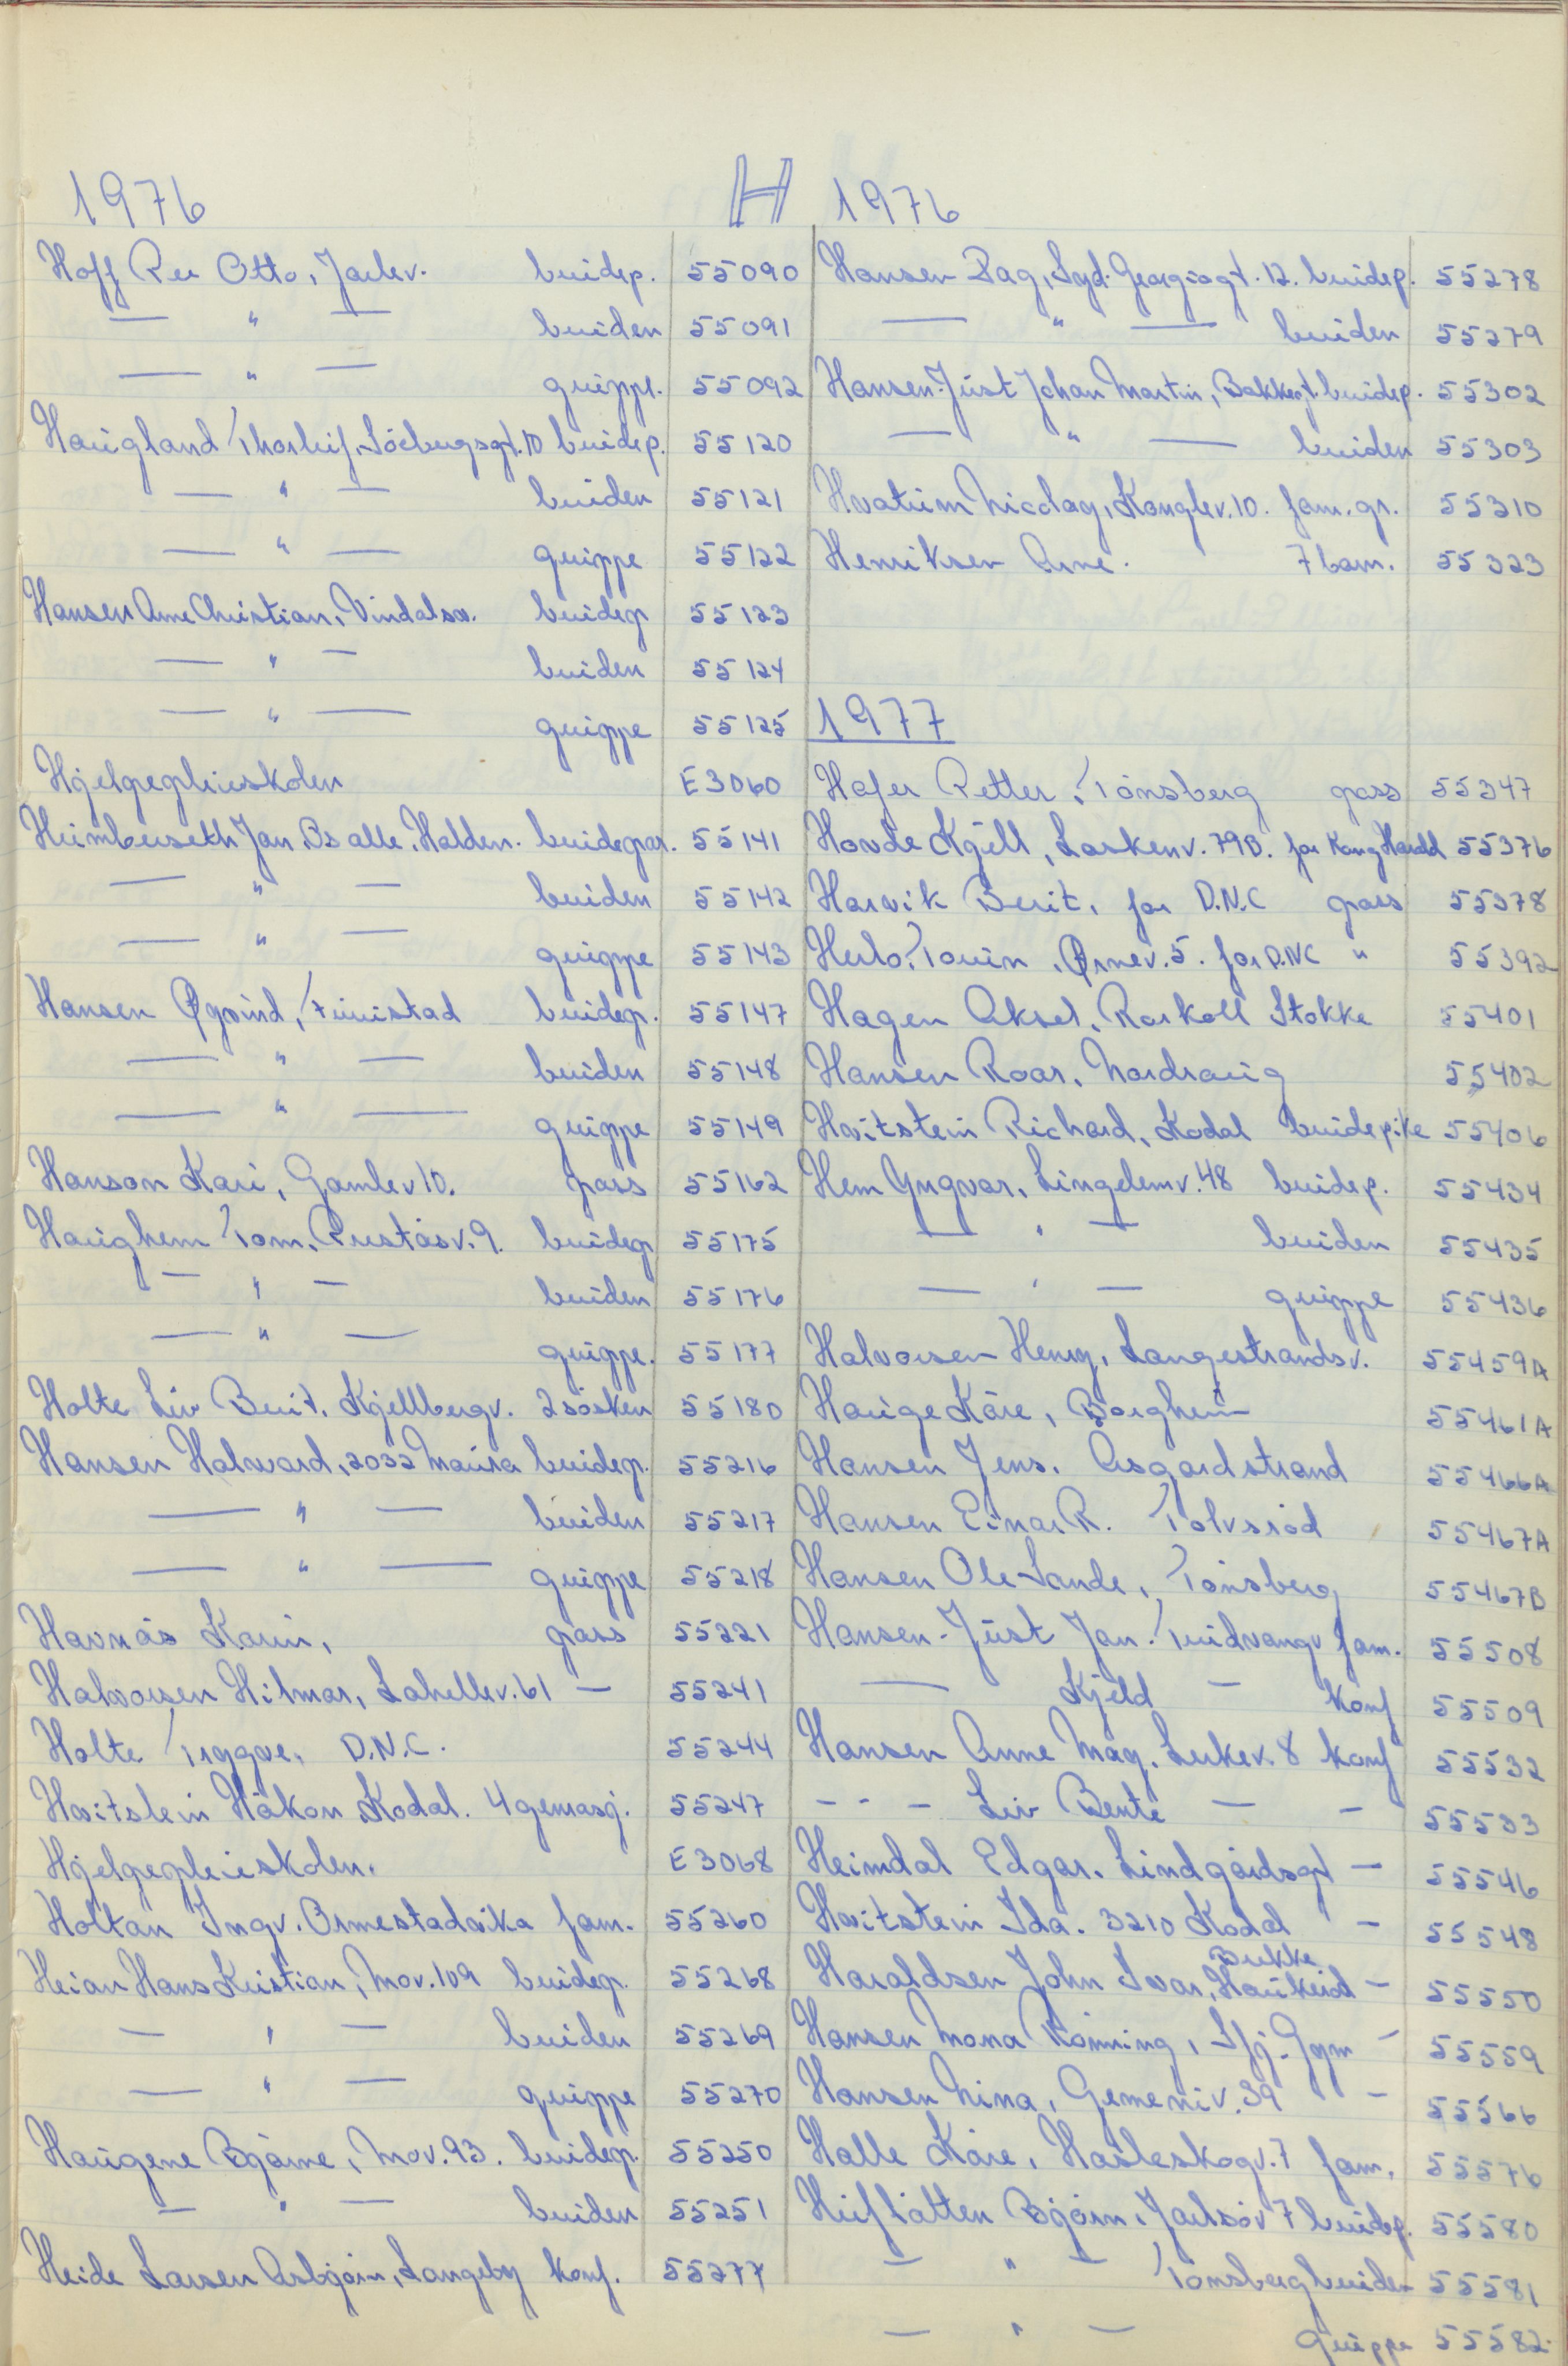 1976
H
Hoff Per Otto, Jarlev. brudep. 55090
— " — bruden 55091
— " — gruppe. 55092
Haugland Thorleif, Söebergsgt. 10 brudep. 55120
— " — bruden 55121
— " — gruppe 55122
Hansen Arne Christian, Vindalsv. brudep 55123
— " — bruden 55124
— " — gruppe 55125
Hjelpepleieskolen E3060
Heimberseth Jan, Bs alle, Halden. brudepar. 55141
— " — bruden 55142
— " — gruppe 55143
Hansen Øyvind, brudep. 55147
— " — bruden 55148
— " — gruppe 55149
Hanson Kari, Gamlev 10. pass 55162
Haughem Tom, Preståsv. 9. brudep 55175
— " — bruden 55176
— " — gruppe. 55177
Holte Liv Berit, Kjellbergv. 2 søsken 55180
Hansen Halvard, 2032 Maura brudep. 55216
— " — bruden 55217
— " — gruppe 55218
Havnås Karin, pass 55221
Halvorsen Hilmar, Lahellev. 61 — 55241
Holte Tryggve, D.N.C. 55244
Hvitstein Håkon Kodal. 4 genrasj. 55247
Hjelpepleieskolen. E3068
Holtan Ingv. Ormestadvika fam. 55260
Heian Hans Kristian, Mov. 109 brudep. 55268
— " — bruden 55269
— " — gruppe 55270
Haugene Bjarne, Mov. 93. brudep. 55250
— " — bruden 55251
Heide Larsen Asbjørn, Langeby konf. 55277
1976
Hansen Dag, Syd. Georgsgt. 12. brudep. 55278
— " — bruden 55279
Hansen-Just Johan Martin, Bakkegt. brudep. 55302
— " — bruden 55303
Hvatum Nicolay, Konglev. 10. fam. gr. 55310
Henriksen Arne. 7 barn. 55323
1977
Hafer Petter, Tønsberg pass 55347
Hovde Kjell, Løskenv. 79B. for Kong Harald 55376
Harvik Berit, for D.N.C pass 55378
Herlo, Torin, Ørnev. 5. for D.N.C " 55392
Hagen Aksel, Raskoll Stokke 55401
Hansen Roar, Nordraug 55402
Hvitstein Richard, Kodal brudepike 55406
Hem Yngvar, Lingelemv. 48 brudep. 55434
— " — bruden 55435
— " — gruppe 55436
Halvorsen Henry, Langestrandsv. 55459A
Hauge Kåre, Borgheim 55461A
Hansen Jens. Åsgardstrand 55466A
Hansen Einar R. Tolvsrød 55467A
Hansen Ole-Sande, Tønsberg 55467B
Hansen-Just Jan. Trudvangv fam. 55508
— Kjeld — konf 55509
Hansen Anne Mag. Lerkev. 8 konf 55532
- - - Liv Bente — - 55533
Heimdal Edgar. Lindgårdsgt — 55546
Hvitstein Ida. 3210 Kodal - 55548
Haraldsen John Ivar, Haukerød Bukke - 55550
Hansen Mona Rønning, Sfj. Gym - 55559
Hansen Nina, Gemeniv. 39 - 55566
Halle Kåre, Hasleskogv. 7 fam. 55576
Heiflåtten Bjørn, Jarlsöv 7 brudep. 55580
— " — Tønsberg bruden 55581
— " — gruppe 55582